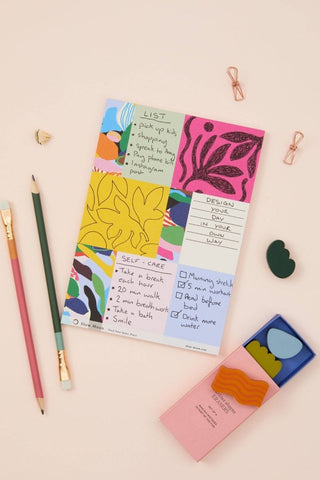 LIST
• pick up kids
• shopping
• Speak to
• Pay phone bill
• Instagram
post
DESIGN
YOUR
DAY
IN YOUR
OWN
WAY
SELF-CARE
• Take a break
each hour
• 20 min walk
• 2 min breathwork
• Take a bath
• Smile
Morning stretch
5 min workout
Read before
bed
Drink more
water
ERASERS